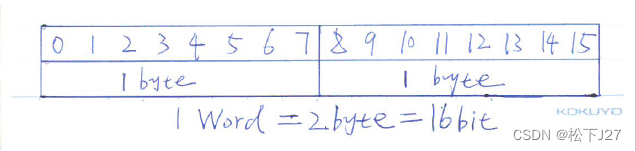 0 1 2 3 4 5 6 7 8 9 10 11 12 13 14 15
1 byte 1 byte
1 Word = 2byte = 16bit
KOKUYO
CSDN @松下J27